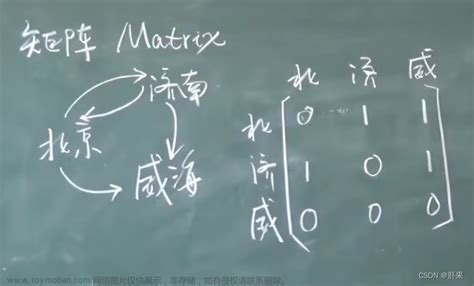 矩阵 Matrix
济南
北京
威海
北 济 威
北 0 1 1
济 1 0 1
威 0 0 0
CSDN @肝果
www.toymoban.com 网络图片仅供展示，非存储，如有侵权请联系删除。